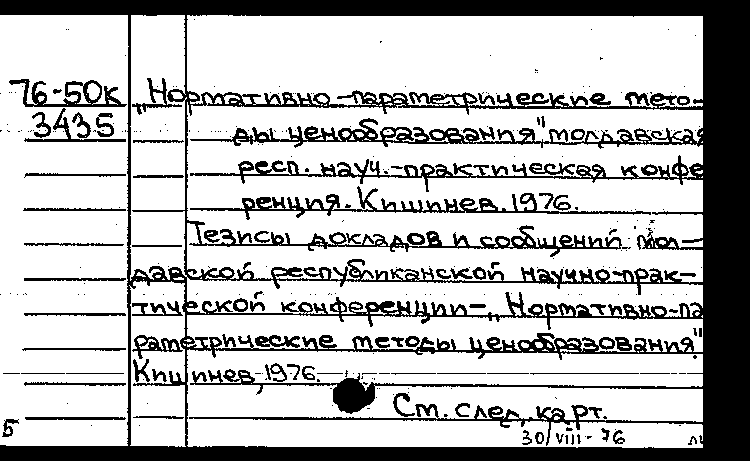 76-50к „Нормативно-параметрические мето-
3435 ды ценообразования", молдавская
респ. науч.-практическая конфе
ренция. Кишинев. 1976.
Тезисы докладов и сообщений мол-
давской республиканской научно-прак-
тической конференции-„Нормативно-па
раметрические методы ценообразования"
Кишинев, 1976.
См. след. карт.
Б 30/viii-76